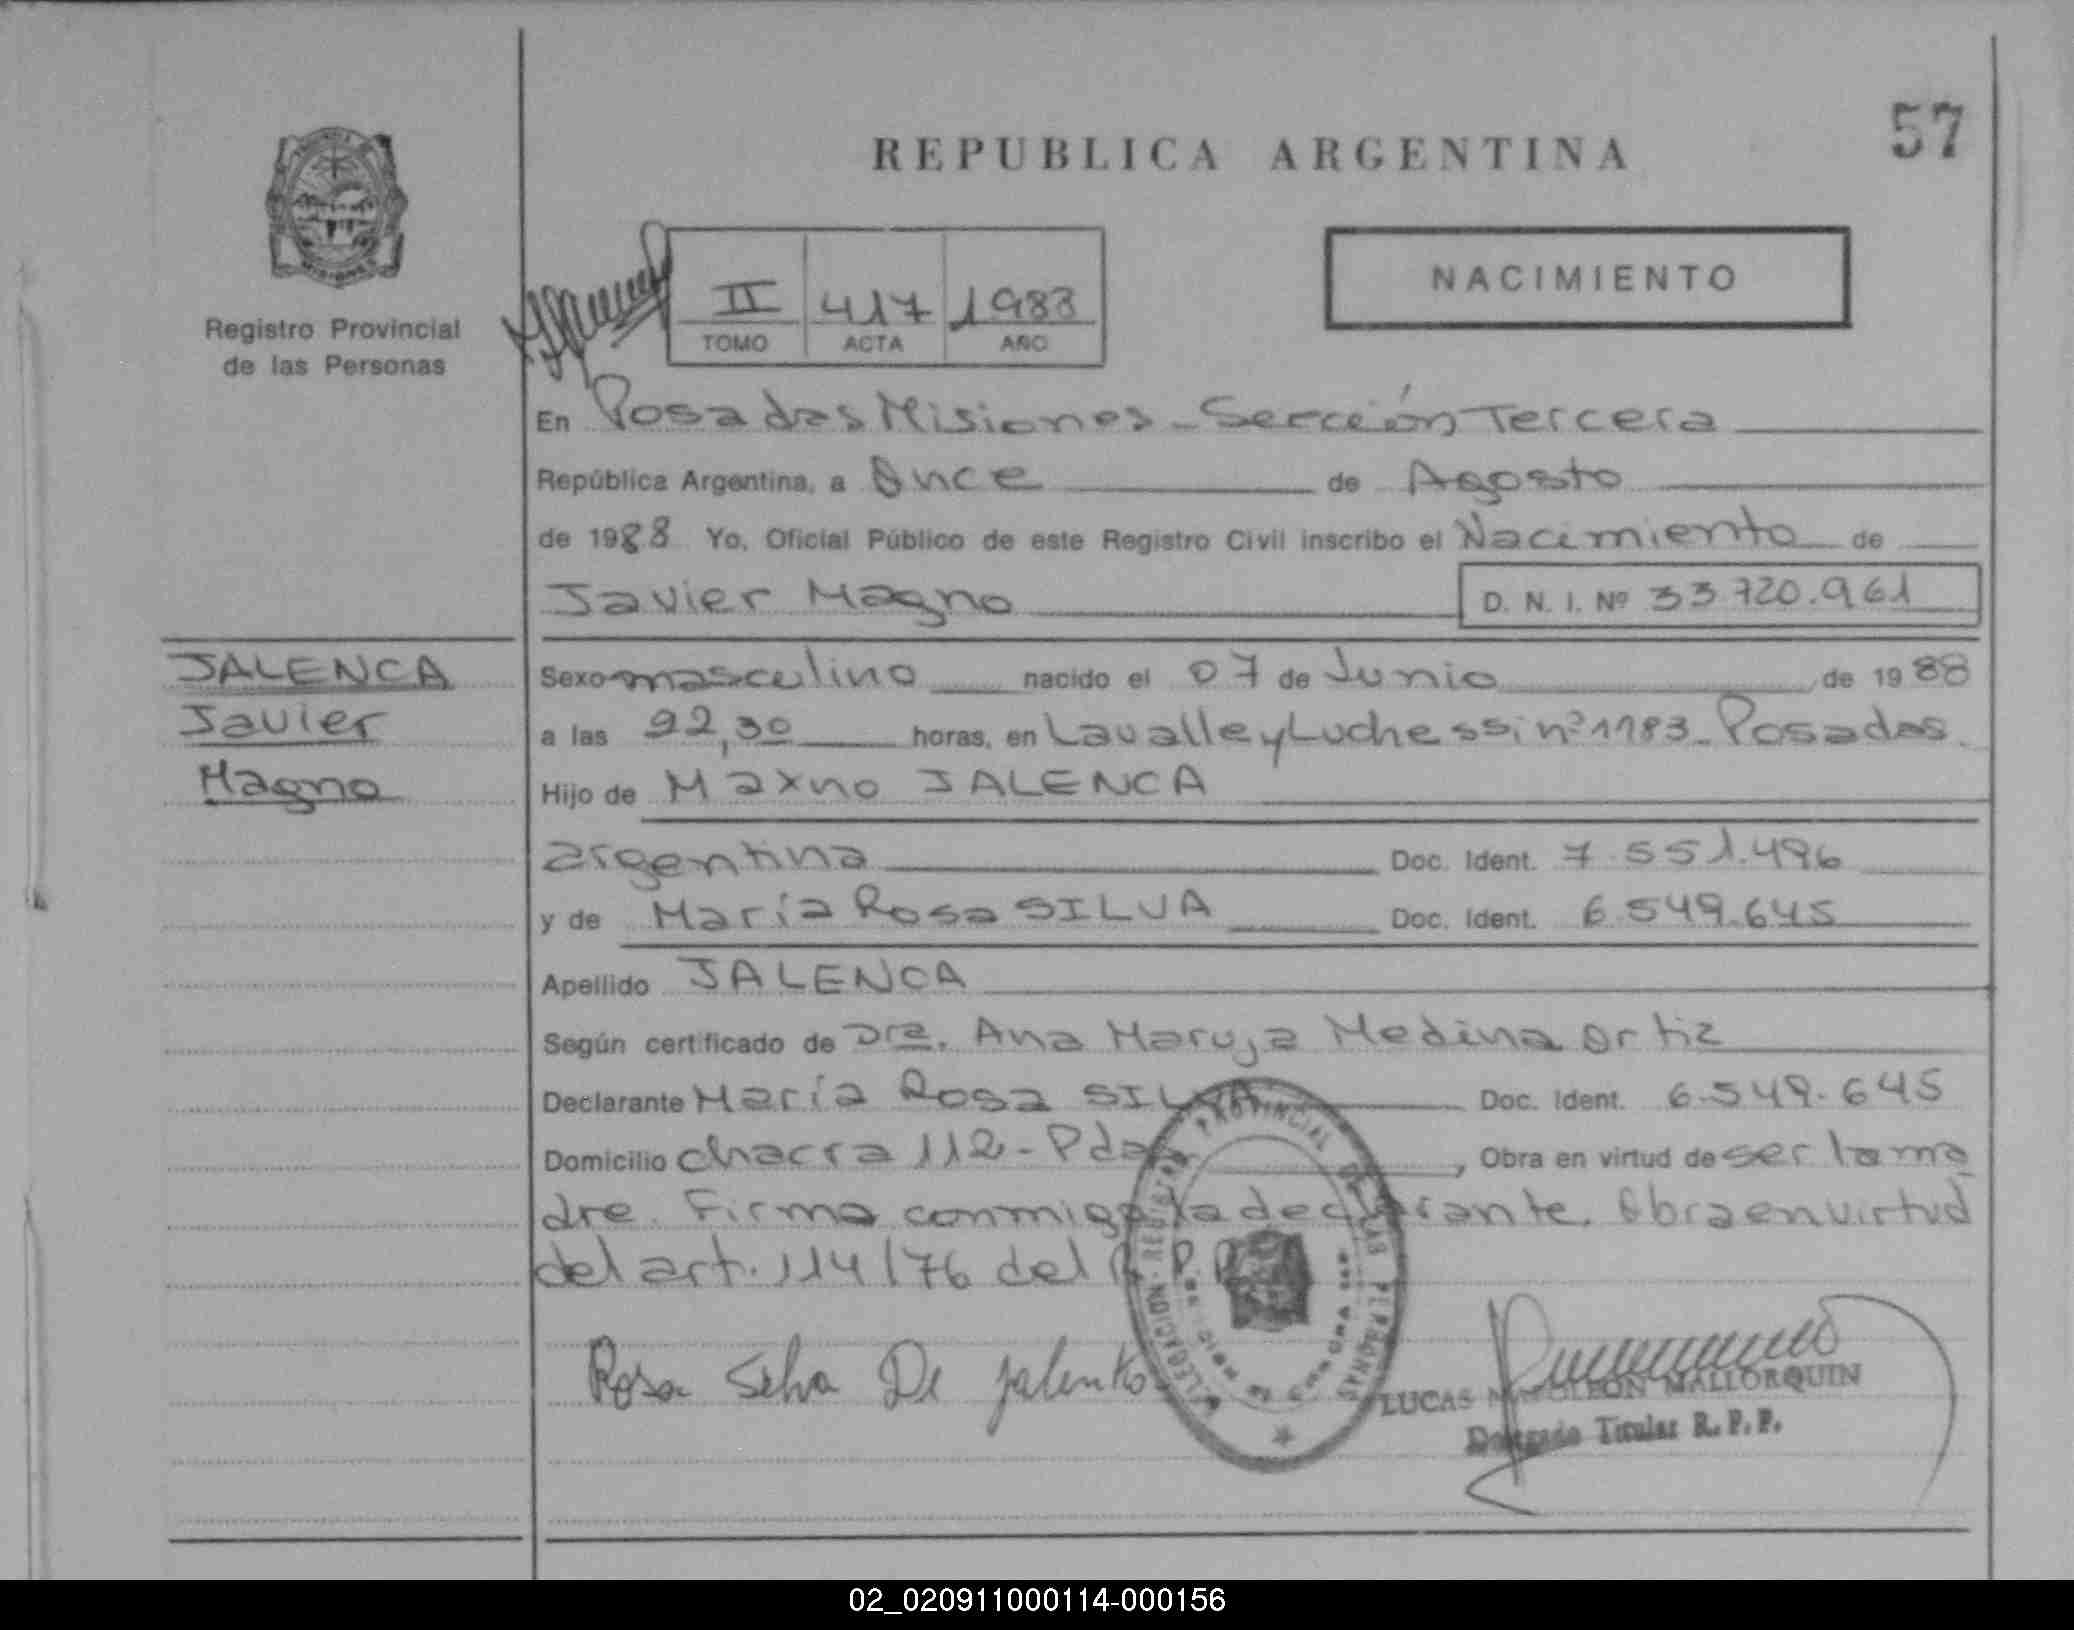 57
REPUBLICA ARGENTINA
NACIMIENTO
II 417 1988
TOMO ACTA AÑO
Registro Provincial
de las Personas
En Posadas Misiones - Sección Tercera
República Argentina, a Once de Agosto
de 1988 Yo, Oficial Público de este Registro Civil inscribo el Nacimiento de
Javier Magno D. N. I. Nº 33.720.961
JALENCA
Javier
Magno
Sexo masculino nacido el 07 de Junio de 1988
a las 22,30 horas, en Lavalle y Luchessi nº 1183 - Posadas.
Hijo de Maxno JALENCA
argentina Doc. Ident. 7.551.496
y de María Rosa SILVA Doc. Ident. 6.549.645
Apellido JALENCA
Según certificado de Dra. Ana Maruja Medina Ortiz
Declarante María Rosa SILVA Doc. Ident. 6.549.645
Domicilio chacra 112 - Pdas , Obra en virtud de ser la ma
dre. Firma conmigo la declarante. Obra en virtud
del art. 114/76 del R.P.P.
Rosa Silva De Jalenko
REGISTRO PROVINCIAL DE LAS PERSONAS
LUCAS NAPOLEON MALLORQUIN
Delegado Titular R. P. P.
02_020911000114-000156